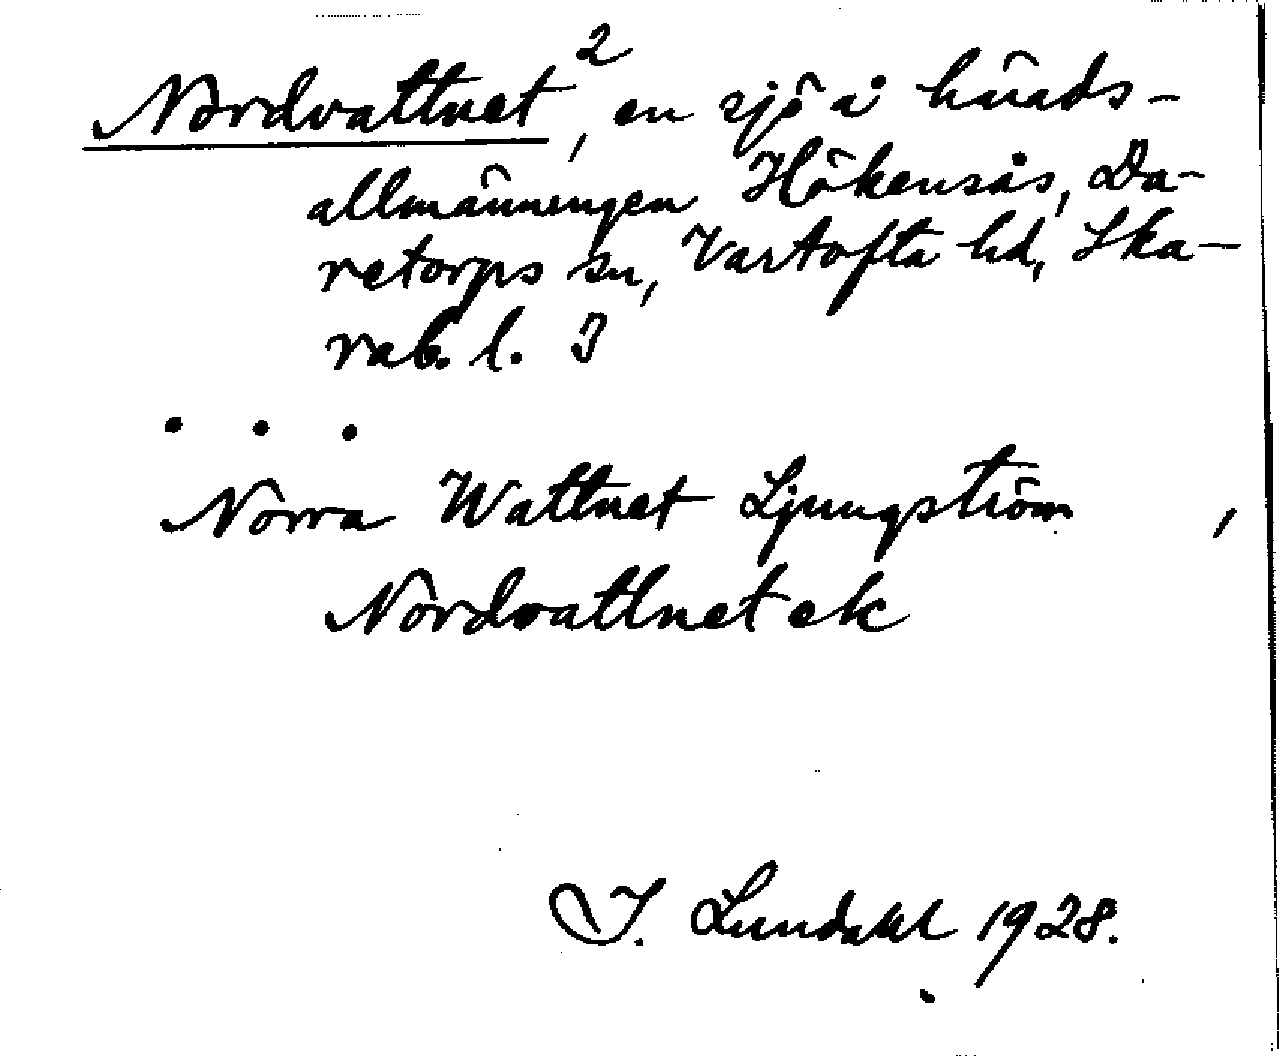 Nordvattnet², en sjö å härads-
allmänningen Hökensås, Da-
retorps sn, Vartofta hd, Ska-
rab. l. J
. . .
Norra Wattnet Ljungström ,
Nordvattnet ek
I. Lundahl 1928.